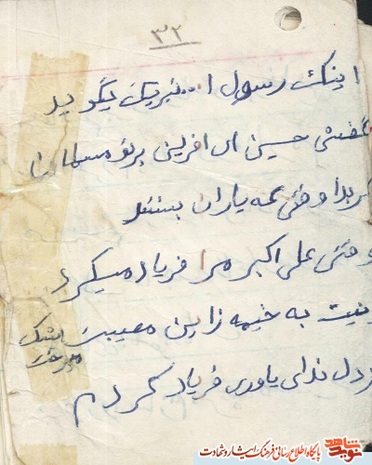 ۳۲
اینک رسول ا تبریک بگویید
نهضتی حسین ای افرین بر تو مسلمان
کربلا وقتی همه یاران
وقتی علی اکبر مرا فریاد میکرد
زینب به خیمه زاین مصیبت اشک میریخت
از دل ندای یاوری فریاد کردم
نوید شاهد
پایگاه اطلاع رسانی فرهنگ ایثار و شهادت